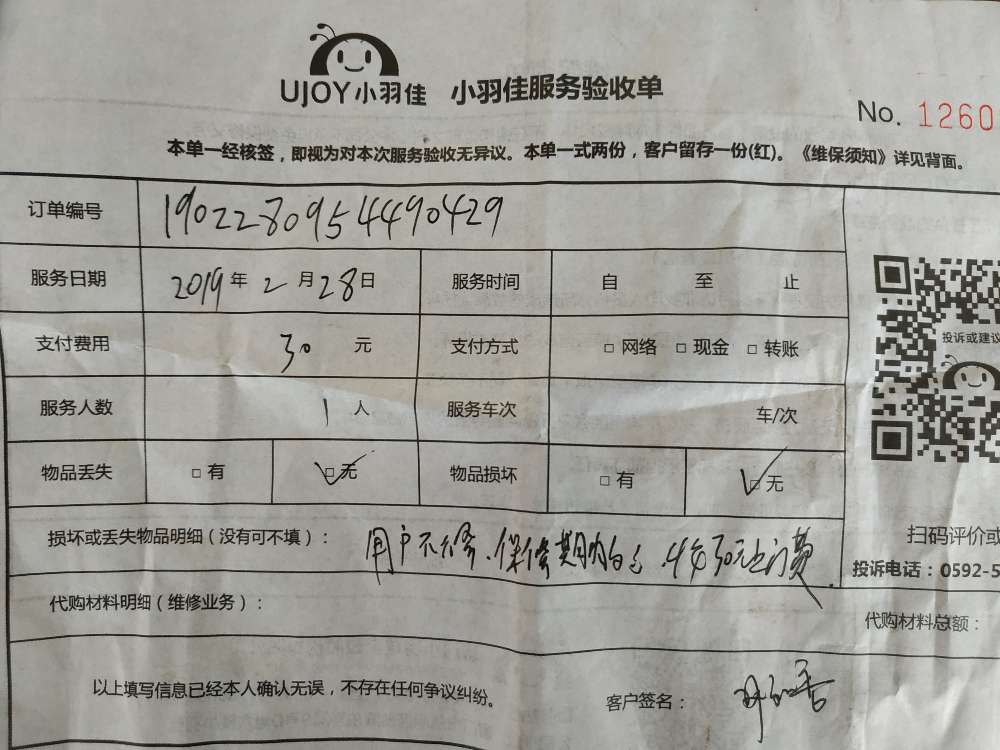 UJOY小羽佳 小羽佳服务验收单
No. 1260
本单一经核签，即视为对本次服务验收无异议。本单一式两份，客户留存一份(红)。《维保须知》详见背面。
订单编号 1902280954490429
服务日期 2019年2月28日 服务时间 自 至 止
支付费用 30 元 支付方式 □ 网络 □ 现金 □ 转账
服务人数 1 人 服务车次 车/次
物品丢失 □ 有 □ 无 物品损坏 □ 有 □ 无
投诉或建议
损坏或丢失物品明细（没有可不填）： 用户不修、保修期内 30元上门费
扫码评价或
投诉电话：0592-5
代购材料明细（维修业务）：
代购材料总额：
以上填写信息已经本人确认无误，不存在任何争议纠纷。 客户签名：